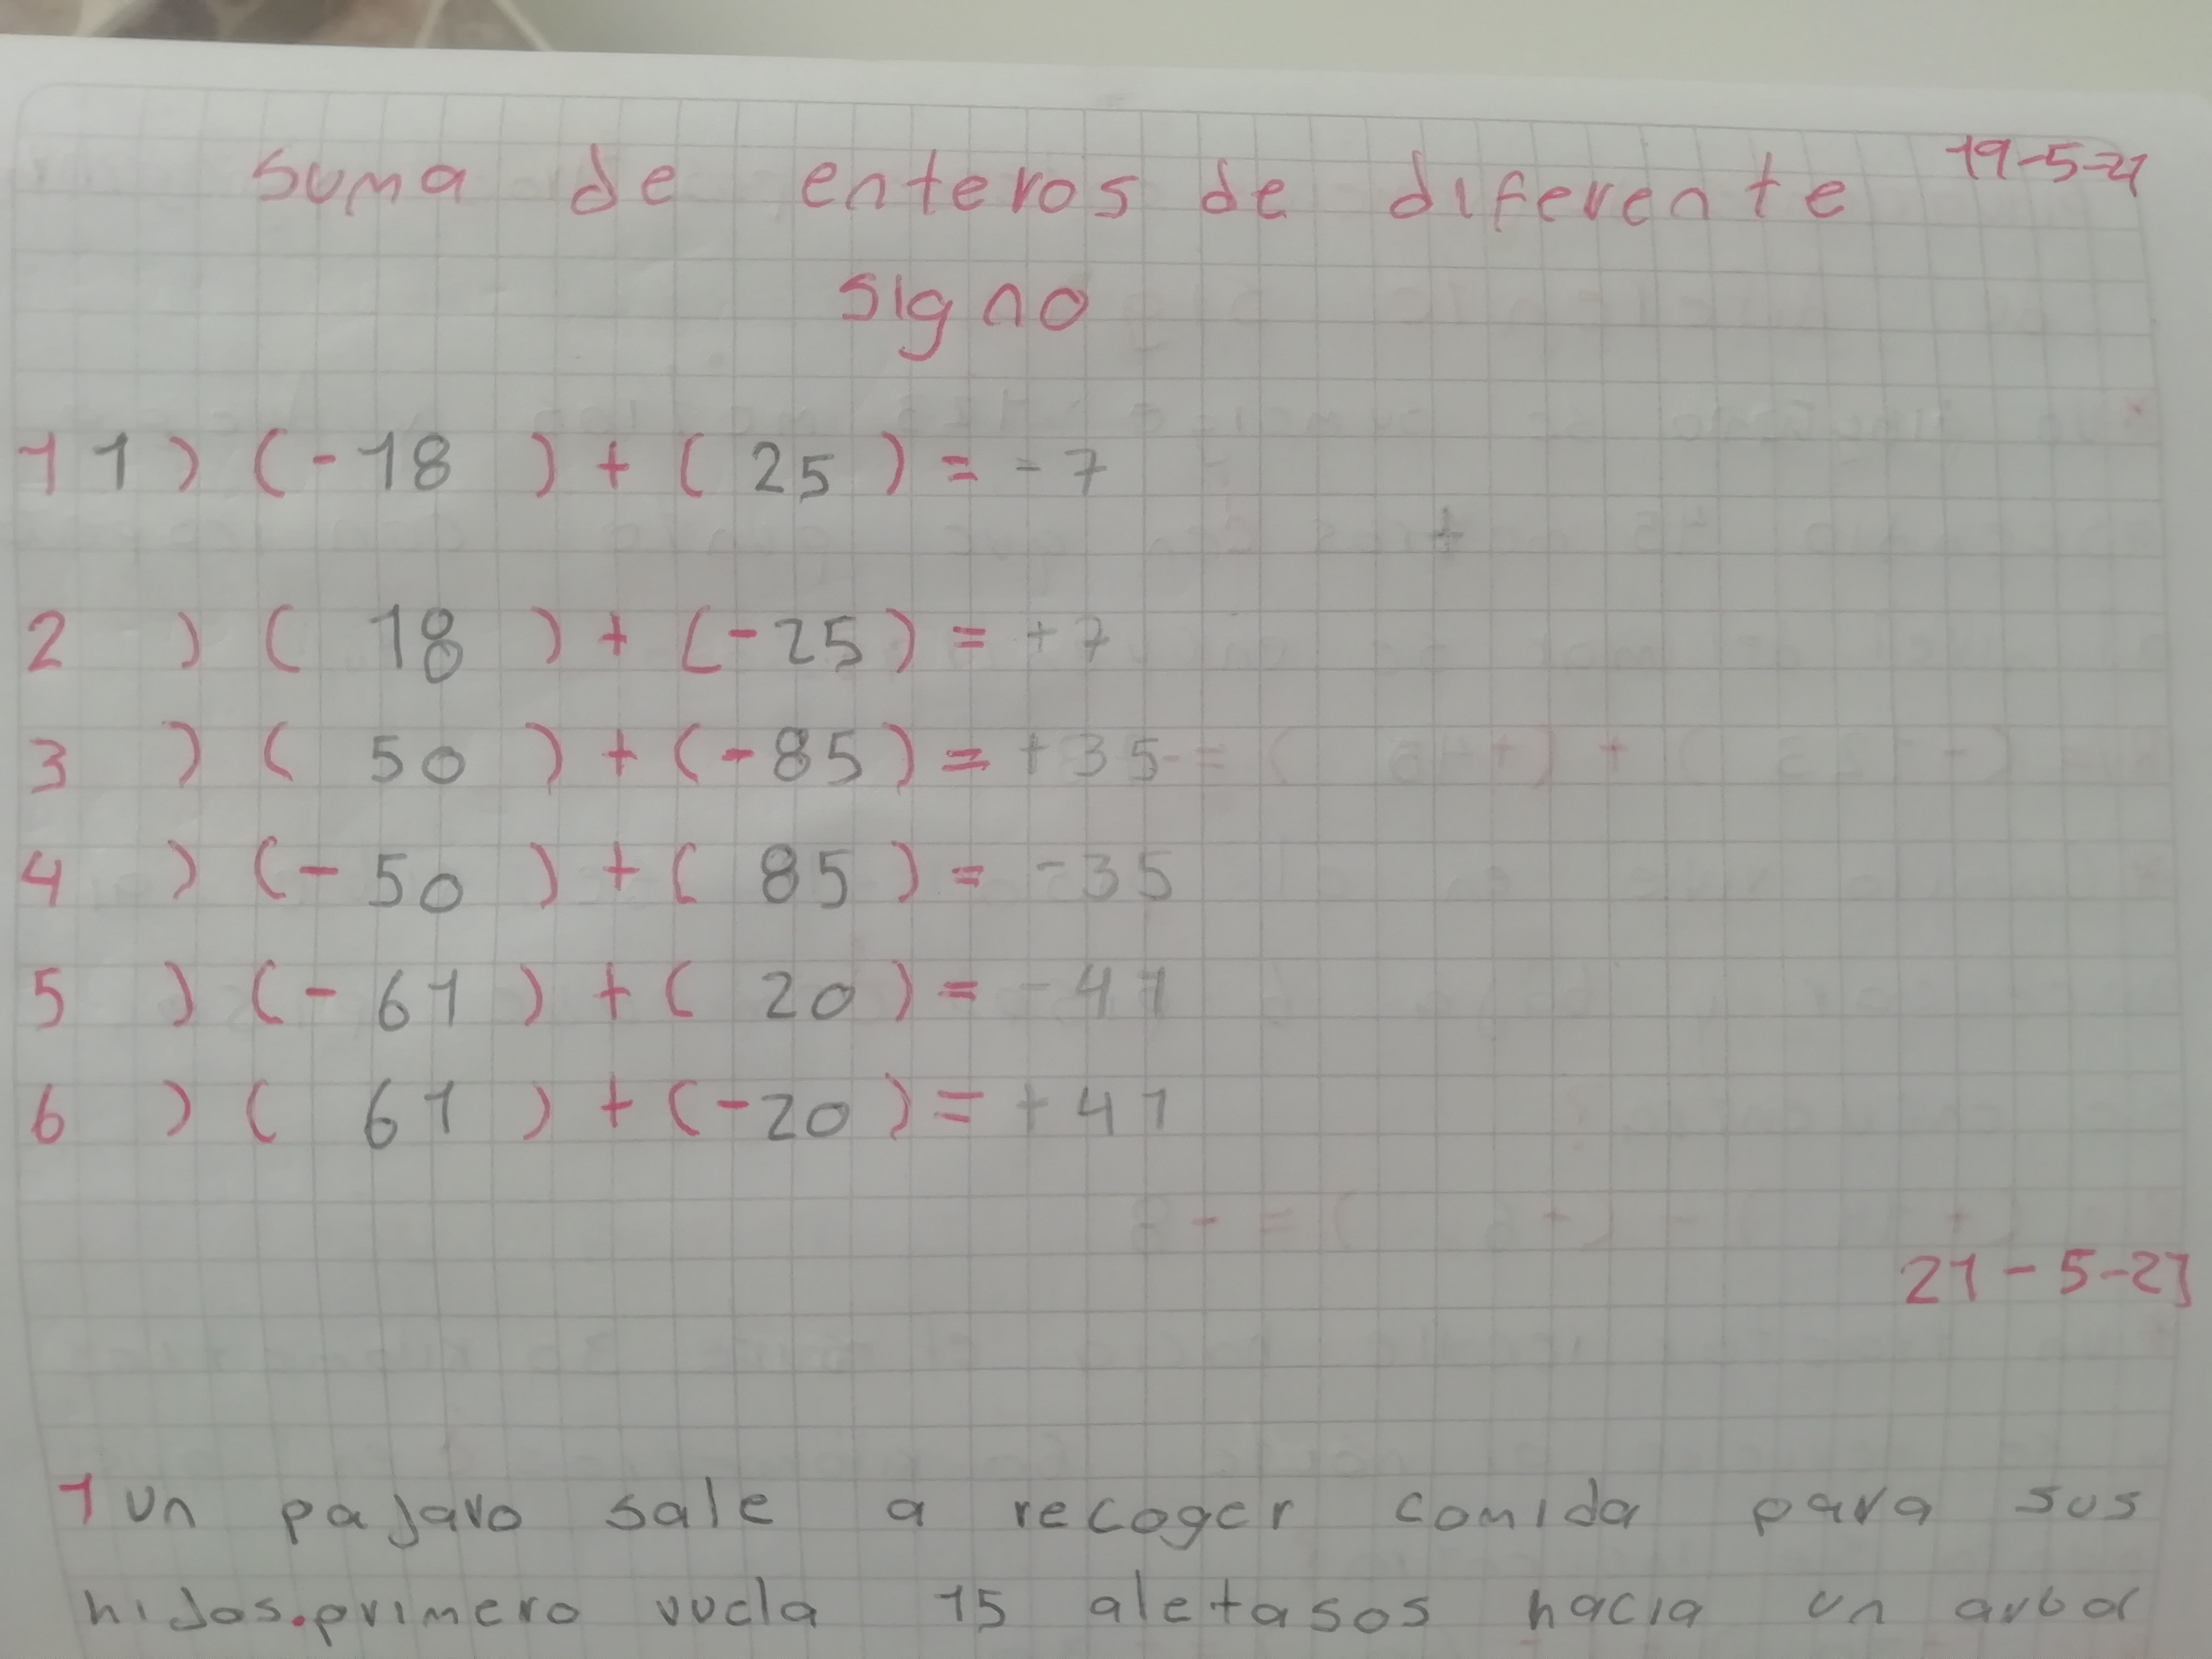 19-5-21
Suma de enteros de diferente
signo
11) (-18) + (25) = -7
2) (18) + (-25) = +7
3) (50) + (-85) = +35
4) (-50) + (85) = -35
5) (-61) + (20) = -41
6) (61) + (-20) = +41
21-5-21
1 un pajaro sale a recoger comida para sus
hijos.primero vuela 15 aletasos hacia un arbol